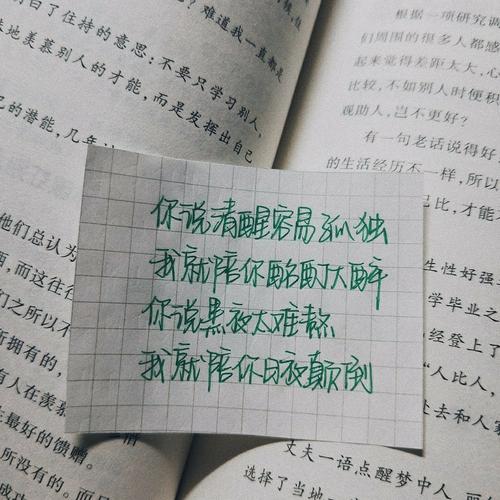 白了住持的意思：不要只学习别人，
地羡慕别人的才能，而是发挥出自己
的潜能，几年
难道我一直都是
你说清醒容易孤独
我就陪你酩酊大醉
你说黑夜太难熬
我就陪你日夜颠倒
他们总认为
而这往
之所以不
所拥有的，
有人在羡慕
最好的馈赠。
所没有的。而
根据一项研究调
们周围的很多人都感
起来觉得差距太大，心
比较，不如别人时便积
观助人，岂不更好？
有一句老话说得好
的生活经历不一样，所以
己比，才能不
生性好强
学毕业之
经登上了
“人比人，
处去和人家
丈夫一语点醒梦中人
选择了当地一